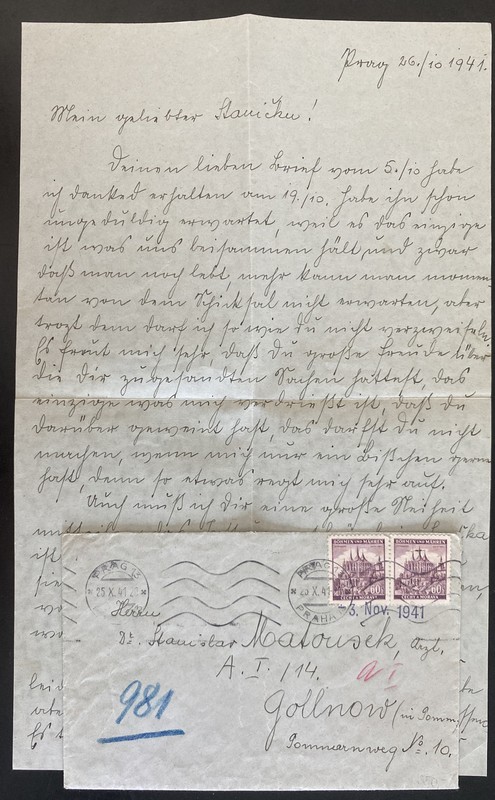 Prag 26./10 1941.
Mein geliebter Staničku!
Deinen lieben Brief vom 5./10 habe
ich dankend erhalten am 19./10. habe ihn schon
ungeduldig erwartet, weil es das einzige
ist was uns beisammen hält, und zwar
daß man noch lebt, mehr kann man momen-
tan von dem Schicksal nicht erwarten, aber
trozt dem darf ich so wie du nicht verzweifeln.
Es freut mich sehr, daß du große Freude über
die dir zugesandten Sachen hattest, das
einzige was mich verdrießt ist, daß du
darüber geweint hast, das darfst du nicht
machen, wenn mich nur ein bißchen gerne
hast, denn so etwas regt mich sehr auf.
Auch muß ich dir eine große Neiheit
ist
sie
leid
Es
BÖHMEN UND MÄHREN BÖHMEN UND MÄHREN
60 60
ČECHY A MORAVA ČECHY A MORAVA
PRAG
25 X. 41
PRAG
25 X. 41
PRAHA
-3. Nov. 1941
Herrn
Dr. Stanislav Matoušek, Arzt.
A. I. / 14.
a I
981
Gollnow (in Pommern
Pommernweg No. 10.